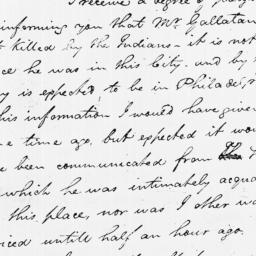 receive a degree of
informing you that Mr. Gallatan
killed by the Indians - it is not
ce he was in this City. and by
y is expected to be in Philadel,
his information I would have given
e time ago, but expected it wou
e been communicated from
which he was intimately acqua
this place, nor was I other wa
iced untill half an hour ago.